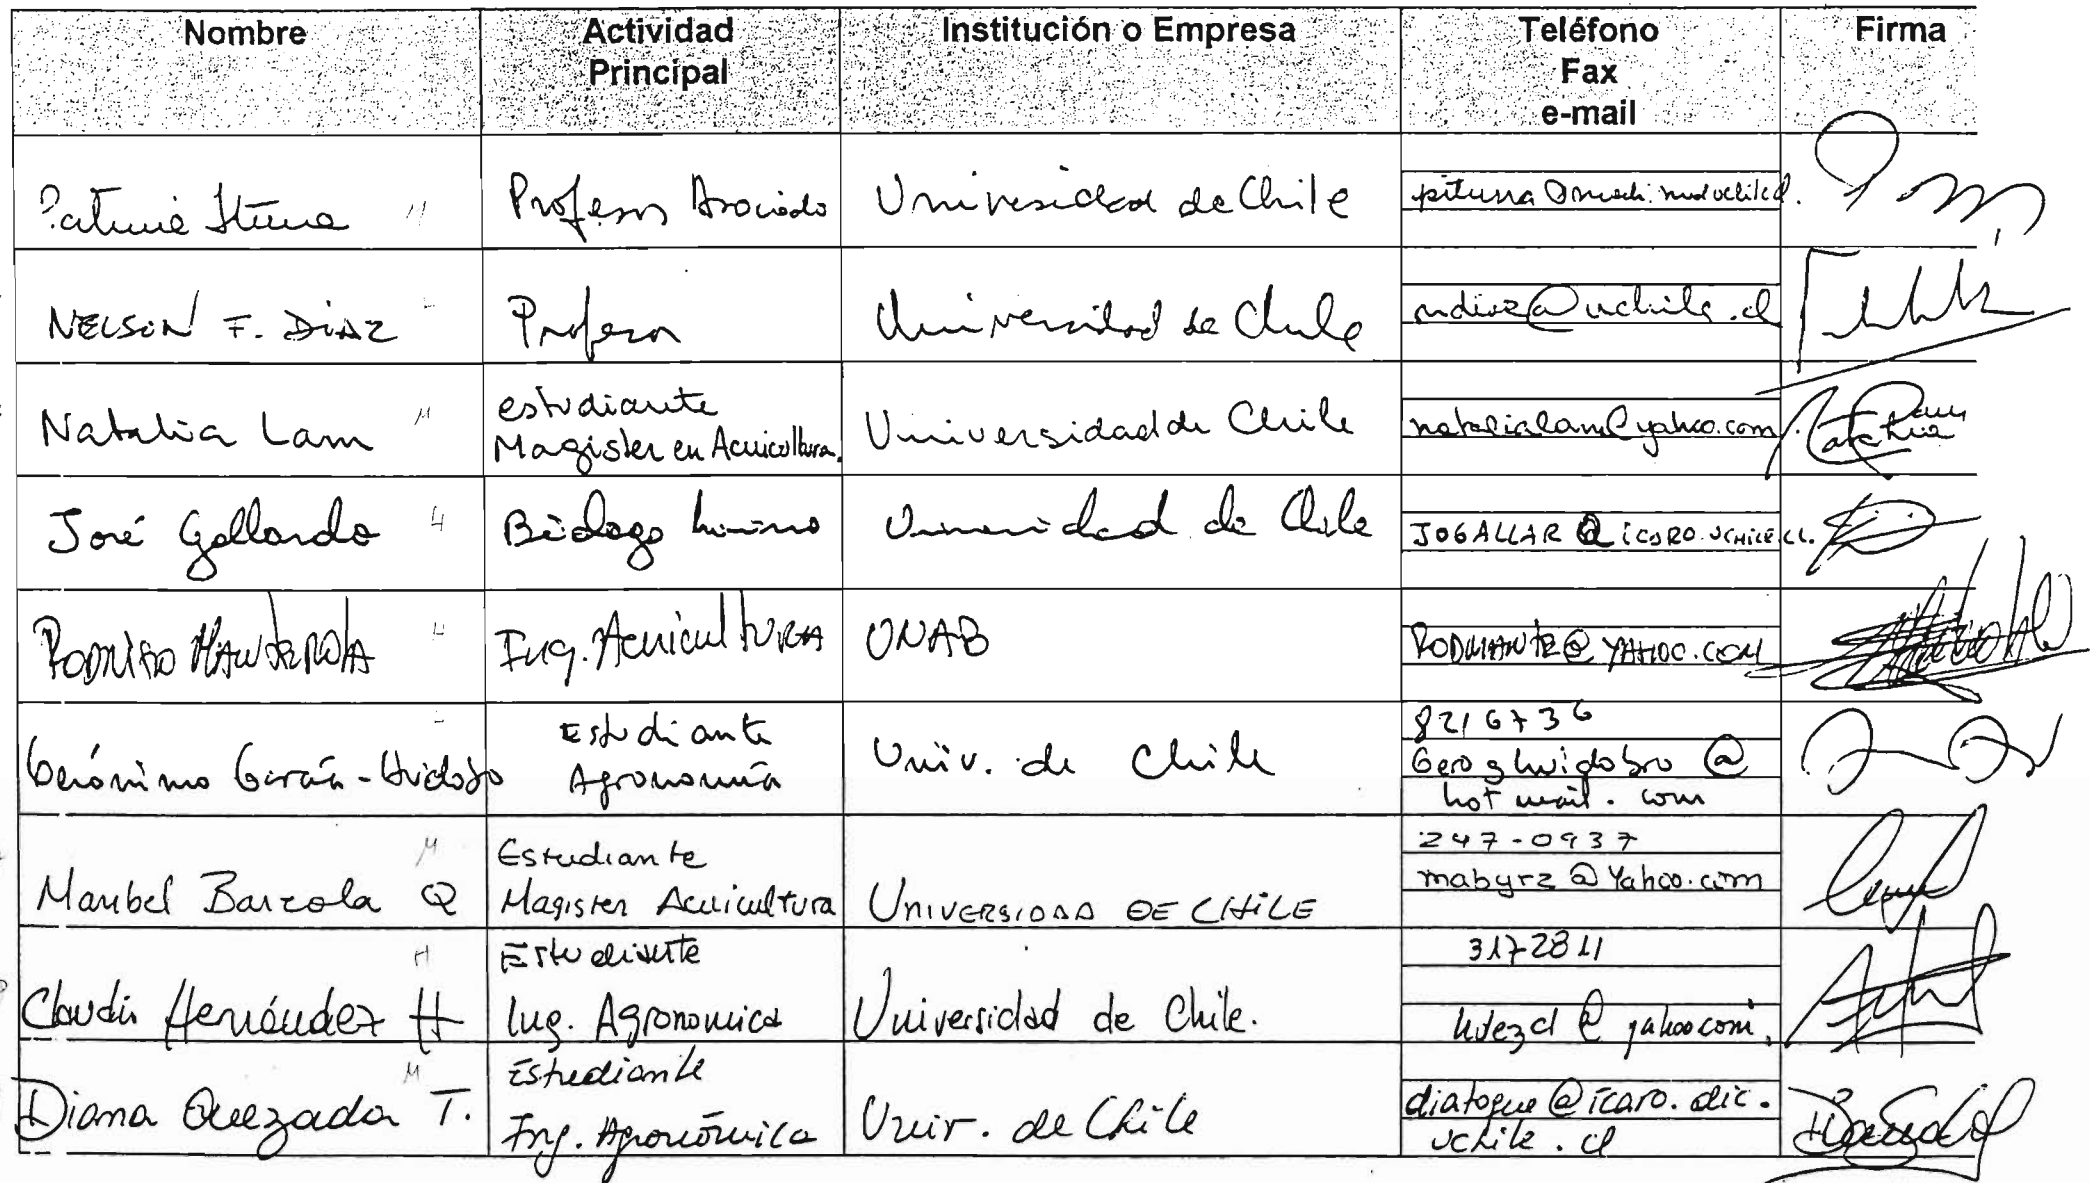 Nombre
Actividad
Principal
Institución o Empresa
Teléfono
Fax
e-mail
Firma
Profesor Asociado
Universidad de Chile
NELSON F. DIAZ
Profesor
Universidad de Chile
ndiaz@uchile.cl
Natalia Lam M
estudiante
Magister en Acuicultura.
Universidad de Chile
natalialam@yahoo.com
José Gallardo H
Biólogo
Universidad de Chile
JOGALLAR @ icaro.uchile.cl.
RODRIGO MANTEROLA H
Ing. Acuicultura
UNAB
RODMANTE@YAHOO.COM
Gerónimo García-Huidobro
Estudiante
Agronomía
Univ. de Chile
8216736
Geroghuidobro @
hotmail.com
Maribel Barzola Q M
Estudiante
Magister Acuicultura
UNIVERSIDAD DE CHILE
247-0937
mabyrz@Yahoo.com
Hernández H H
Estudiante
Ing. Agronomica
Universidad de Chile.
3172811
Diana Quezada T. M
Estudiante
Ing. Agronómica
Univ. de Chile
diatoque@icaro.dic.
uchile.cl